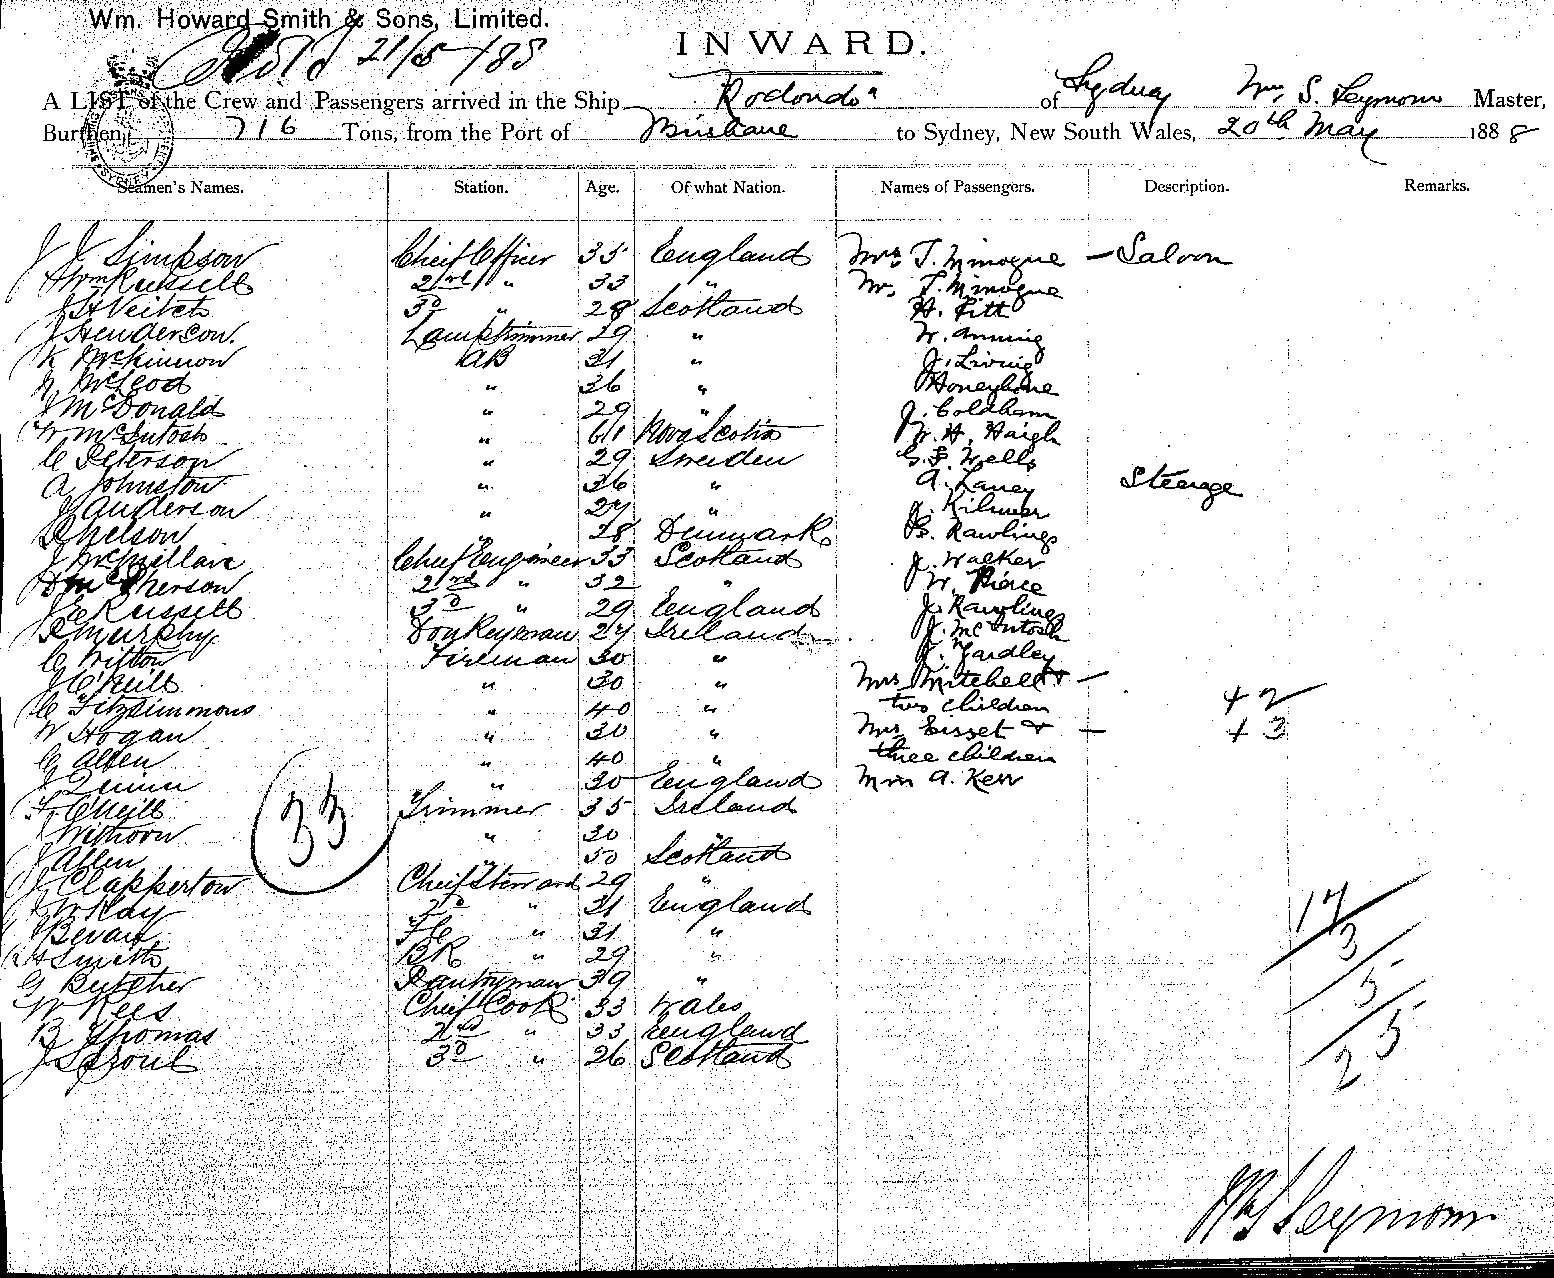 Wm. Howard Smith & Sons, Limited.
21/5/88
INWARD.
A LIST of the Crew and Passengers arrived in the Ship "Rodondo" of Sydney Wm. S. Seymour Master,
Burthen, 716 Tons, from the Port of Brisbane to Sydney, New South Wales, 20th May 1888
Seamen's Names. Station. Age. Of what Nation. Names of Passengers. Description. Remarks.
J J Simpson Chief Officer 35 England Mrs T. Minogue — Saloon
Wm Russell 2nd " 33 " Mr. T. Minogue
J H Veitch 3d " 28 Scotland H. Pitt
J Henderson. Lamptrimmer 29 " W. Anning
K McKinnon AB 31 " J. Living
N McLeod " 36 " Honeybone
J McDonald " 29 " J. Coldham
W McIntosh " 61 Nova Scotia W. H. Haigh
C Peterson " 29 Sweden G. F. Wells
A Johnston " 36 " A. Laney Steerage
J Anderson " 27 " J. Kilmer
Nelson " 28 Denmark G. Rawlings
J McMillan Chief Engineer 33 Scotland J. Walker
D McPherson 2nd " 32 " W. Pierce
J E Russell 3d " 29 England J. Rawlings
P Murphy Donkeyman 27 Ireland J. McIntosh
C Witton Fireman 30 " J. Yardley
J O'Neill " 30 " Mrs Mitchell & —
C Fitzsimmons " 40 " two children + 2
W Hogan " 30 " Mrs Sisset & — + 3
G Allen " 40 " three children
J Quinn " 30 England Mrs A. Kerr
F O'Neill Trimmer 35 Ireland
" 30
J Allen " 50 Scotland
33
J Clapperton Chief Steward 29 "
J McKay 2d " 31 England
Bevan F C " 31 "
Smith BK " 29 "
G Butcher Pantryman 39 "
W Rees Chief Cook 33 Wales
B Thomas 2nd " 33 England
J Sproul 3d " 26 Scotland
17
3
5
25
Wm S Seymour